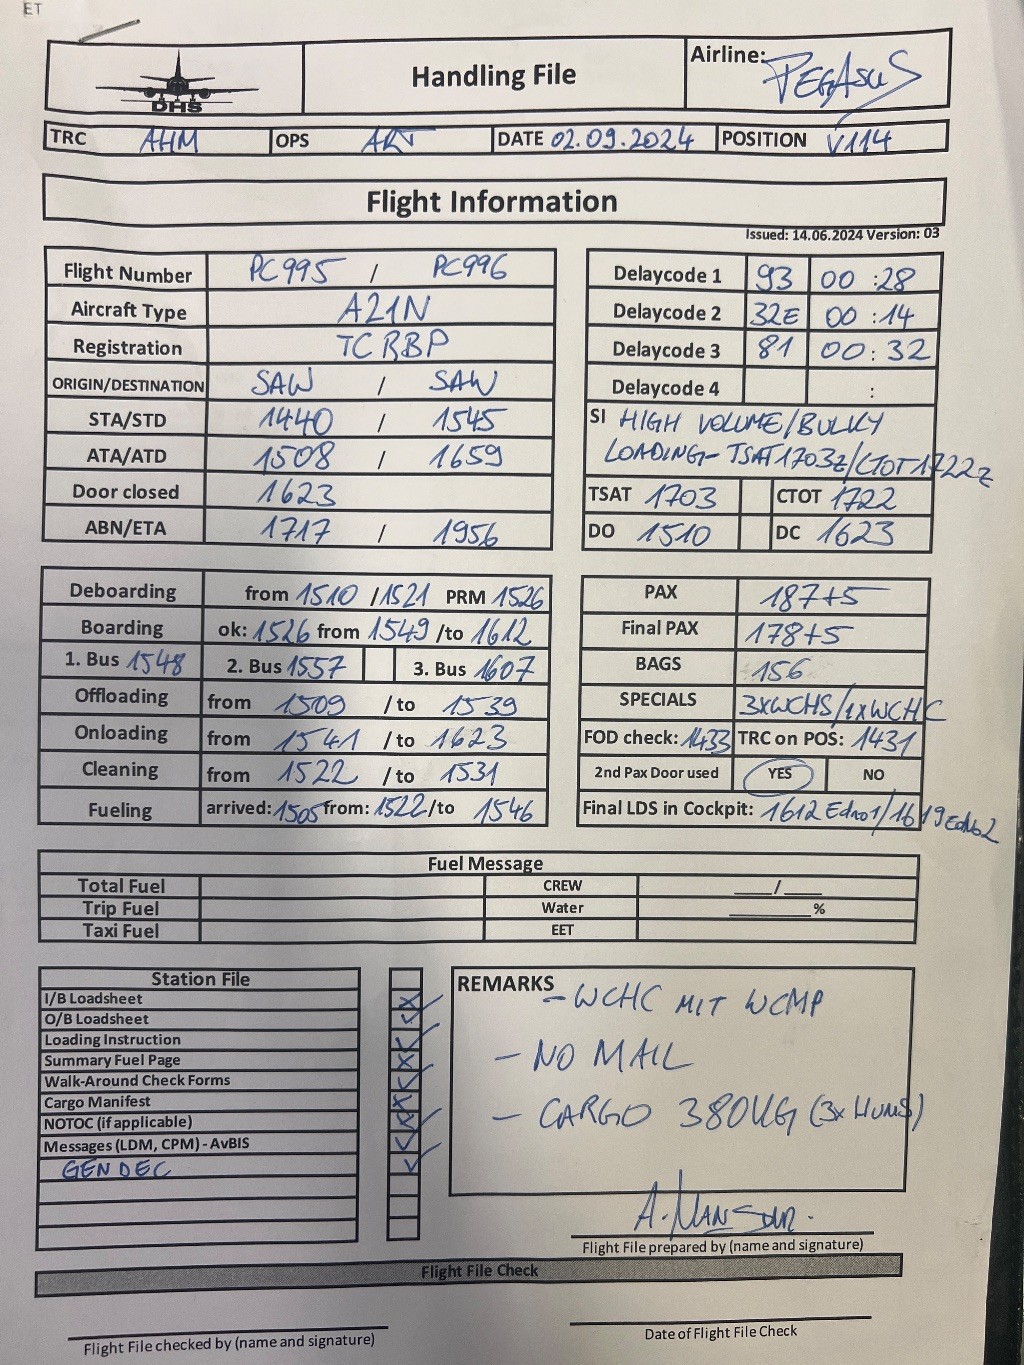 ET
DHS
Handling File
Airline: PEGASUS
TRC AHM OPS ART DATE 02.09.2024 POSITION V114
Flight Information
Issued: 14.06.2024 Version: 03
Flight Number PC995 / PC996
Aircraft Type A21N
Registration TCRBP
ORIGIN/DESTINATION SAW / SAW
STA/STD 1440 / 1545
ATA/ATD 1508 / 1659
Door closed 1623
ABN/ETA 1717 / 1956
Delaycode 1 93 00 :28
Delaycode 2 32E 00 :14
Delaycode 3 81 00:32
Delaycode 4 :
SI HIGH VOLUME/BULKY
LOADING-TSAT1703z/CTOT1722z
TSAT 1703 CTOT 1722
DO 1510 DC 1623
Deboarding from 1510 /1521 PRM 1526
Boarding ok: 1526 from 1549 /to 1612
1. Bus 1548 2. Bus 1557 3. Bus 1607
Offloading from 1509 / to 1539
Onloading from 1541 / to 1623
Cleaning from 1522 / to 1531
Fueling arrived: 1505 from: 1522 /to 1546
PAX 187+5
Final PAX 178+5
BAGS 156
SPECIALS 3xWCHS/1xWCHC
FOD check: 1433 TRC on POS: 1431
2nd Pax Door used YES NO
Final LDS in Cockpit: 1612 Edno1/1619 EdNo2
Fuel Message
Total Fuel CREW ___/___
Trip Fuel Water ______%
Taxi Fuel EET
Station File
I/B Loadsheet
O/B Loadsheet
Loading Instruction
Summary Fuel Page
Walk-Around Check Forms
Cargo Manifest
NOTOC (if applicable)
Messages (LDM, CPM) - AvBIS
GENDEC
REMARKS
- WCHC MIT WCMP
- NO MAIL
- CARGO 380KG (3x HUMS)
A. MANSOUR.
Flight File prepared by (name and signature)
Flight File Check
Flight File checked by (name and signature)
Date of Flight File Check